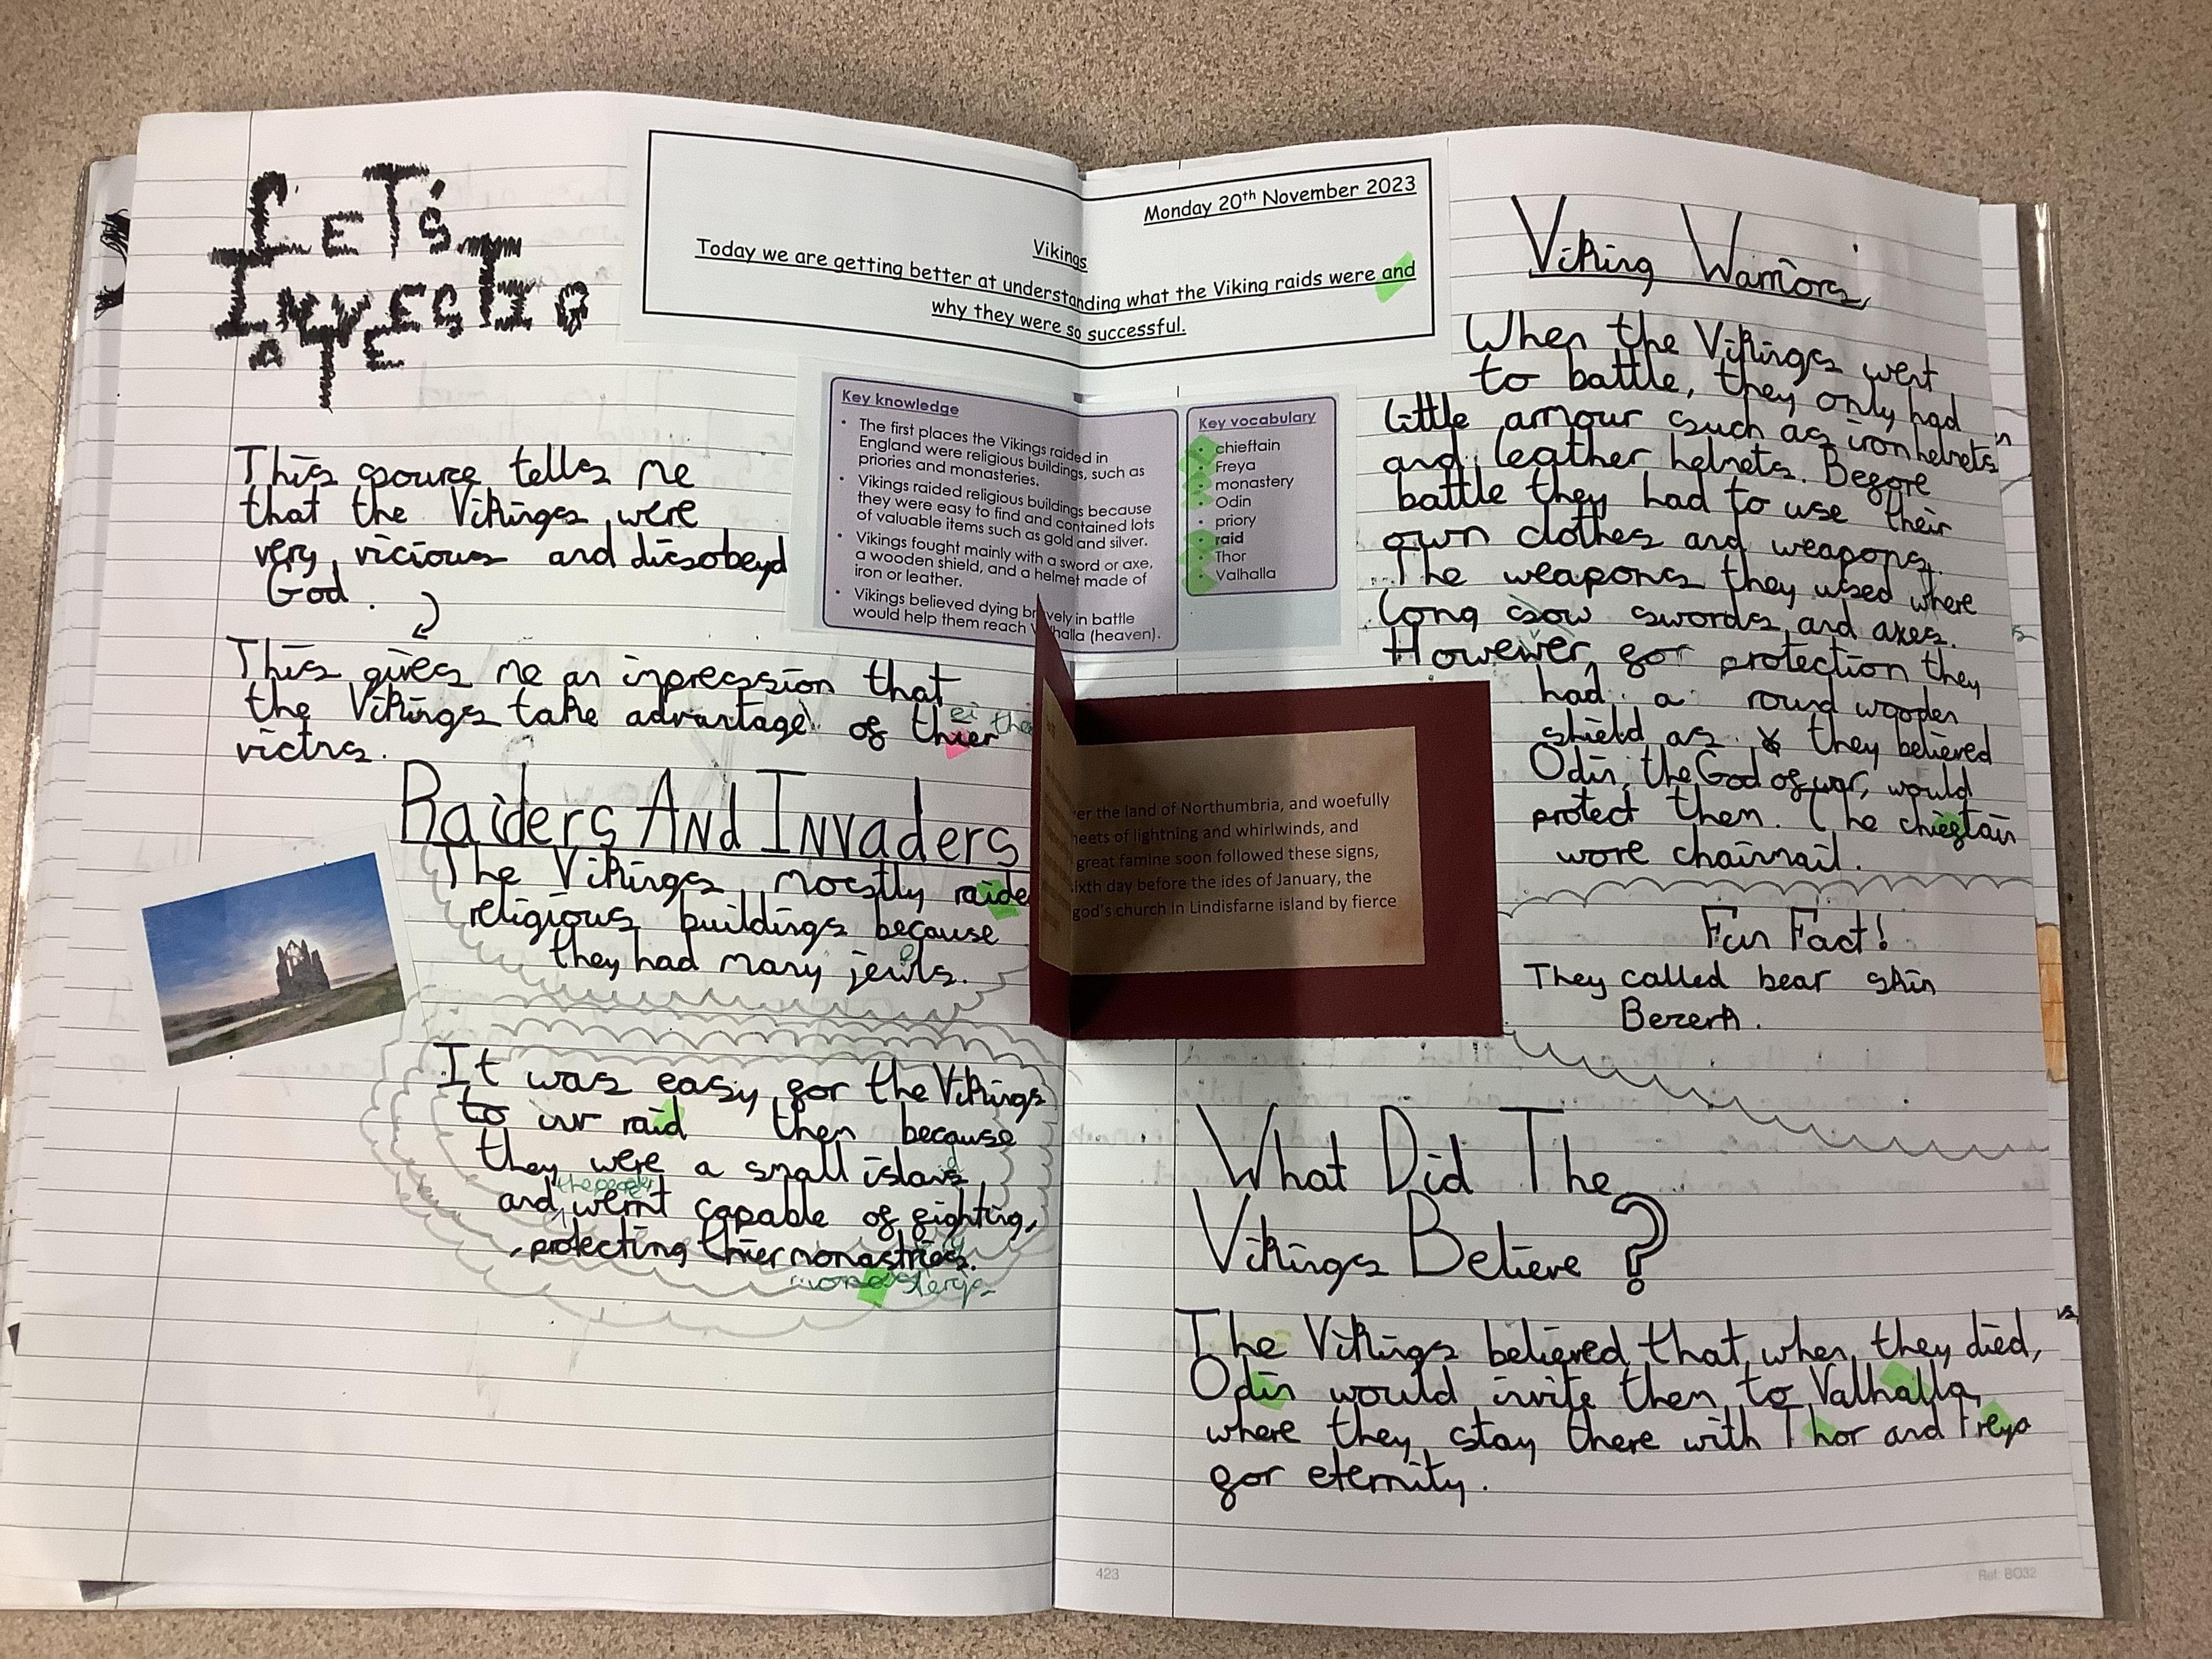 LET'S
INVESTIG
ATE
Monday 20th November 2023
Vikings
Today we are getting better at understanding what the Viking raids were and
why they were so successful.
This source tells me
that the Vikings were
very vicious and disobeyd
God.
This gives me an impression that
the Vikings take advantage of thier
ei the
victms.
Key knowledge
• The first places the Vikings raided in
England were religious buildings, such as
priories and monasteries.
• Vikings raided religious buildings because
they were easy to find and contained lots
of valuable items such as gold and silver.
• Vikings fought mainly with a sword or axe,
a wooden shield, and a helmet made of
iron or leather.
• Vikings believed dying bravely in battle
would help them reach Valhalla (heaven).
Key vocabulary
• chieftain
• Freya
• monastery
• Odin
• priory
• raid
• Thor
• Valhalla
Raiders And Invaders
The Vikings mostly raide
religious buildings because
they had many jewls.
e
It was easy for the Vikings
to raid them because
they were a small island
the people
and wernt capable of fighting,
protecting thier monastries.
er the land of Northumbria, and woefully
heets of lightning and whirlwinds, and
great famine soon followed these signs,
ixth day before the ides of January, the
god's church in Lindisfarne island by fierce
Viking Warriors
When the Vikings went
to battle, they only had
little armour such as iron helmets
and leather helmets. Before
battle they had to use their
own clothes and weapons.
The weapons they used where
long sow swords and axes.
However, for protection they
had a round wooden
shield as they believed
Odin, the God of war, would
protect them. The chieftain
wore chainmail.
Fun Fact!
They called bear skin
Bezerk.
What Did The
Vikings Believe?
The Vikings believed that when they died,
Odin would invite them to Valhalla,
where they stay there with Thor and Freya
for eternity.
423
Ref: BO32